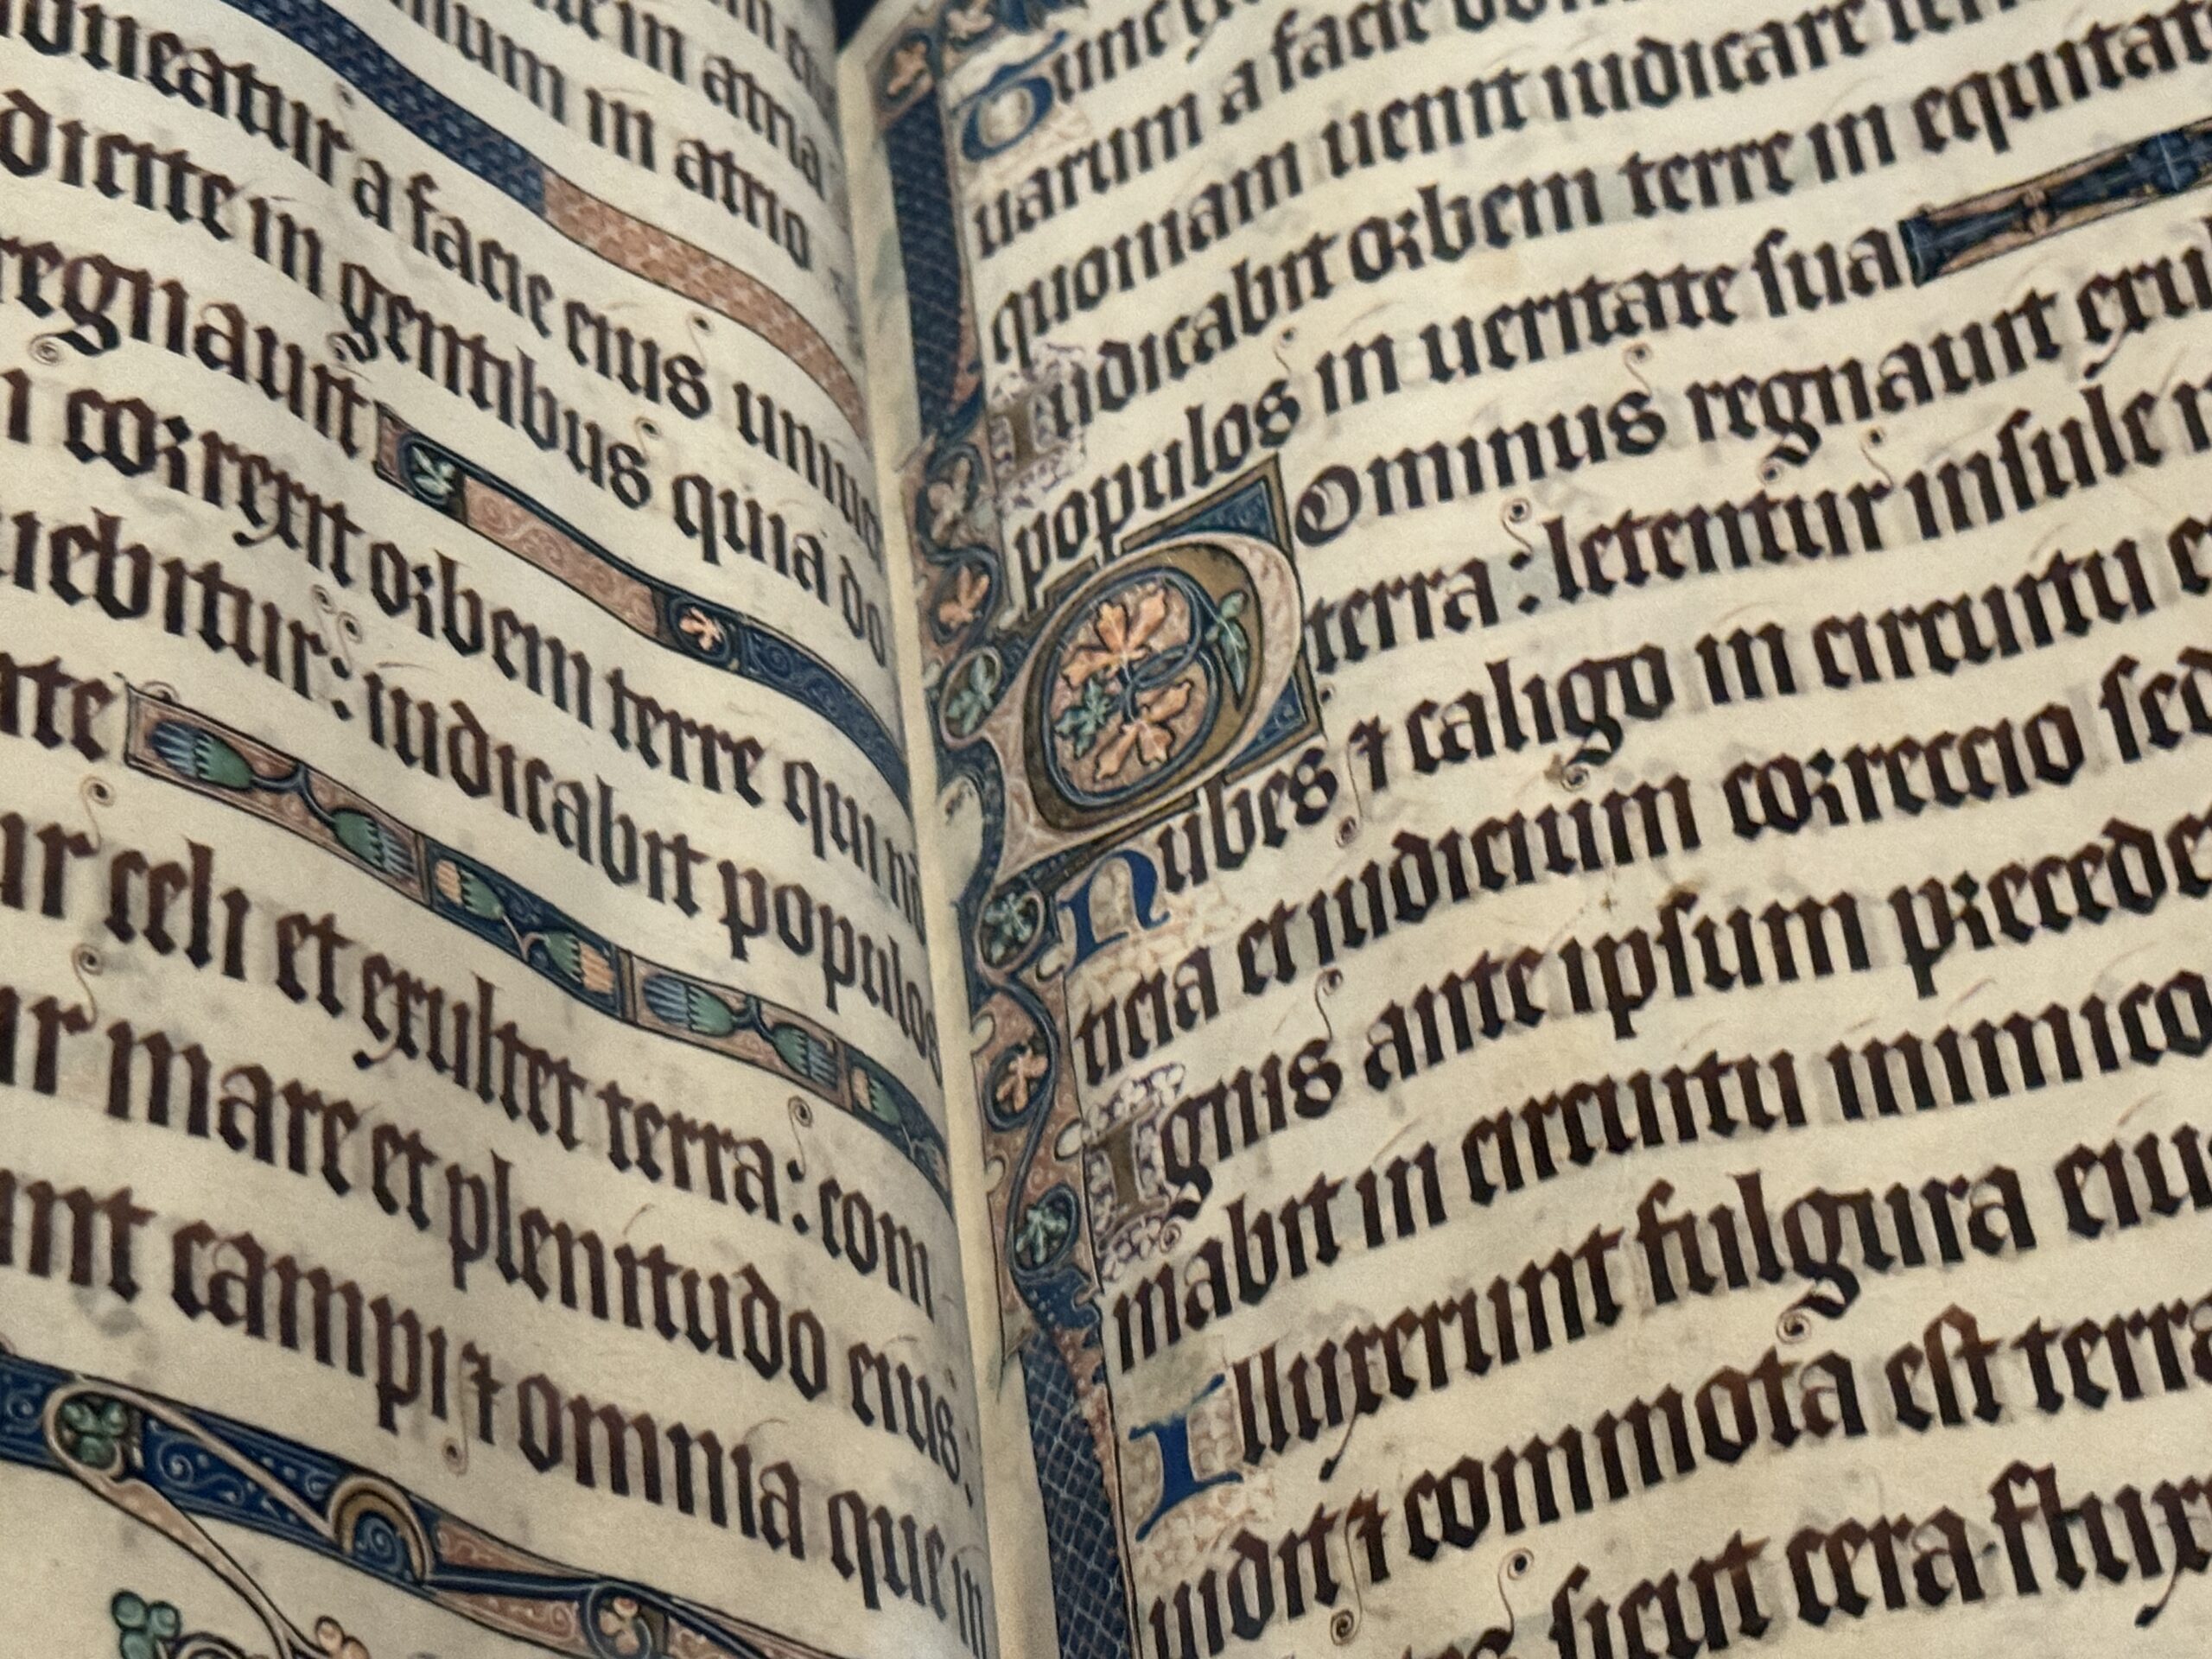 in atria
num in atrio
oueatur a facie eius uniuer
dicite in gentibus quia do
regnauit
correxit orbem terre qui no
uebitur: iudicabit populos
ate
ur celi et exultet terra: com
ur mare et plenitudo eius:
unt campi ⁊ omnia que in
Tunc
uarum a facie dom
quoniam uenit iudicare terr
Iudicabit orbem terre in equitat
populos in ueritate sua
Dominus regnauit exul
terra: letentur insule m
Nubes ⁊ caligo in circuitu e
ticia et iudicium correccio sed
Ignis ante ipsum precede
mabit in circuitu inimico
Illuxerunt fulgura eiu
uidit ⁊ commota est terra
sicut cera flux